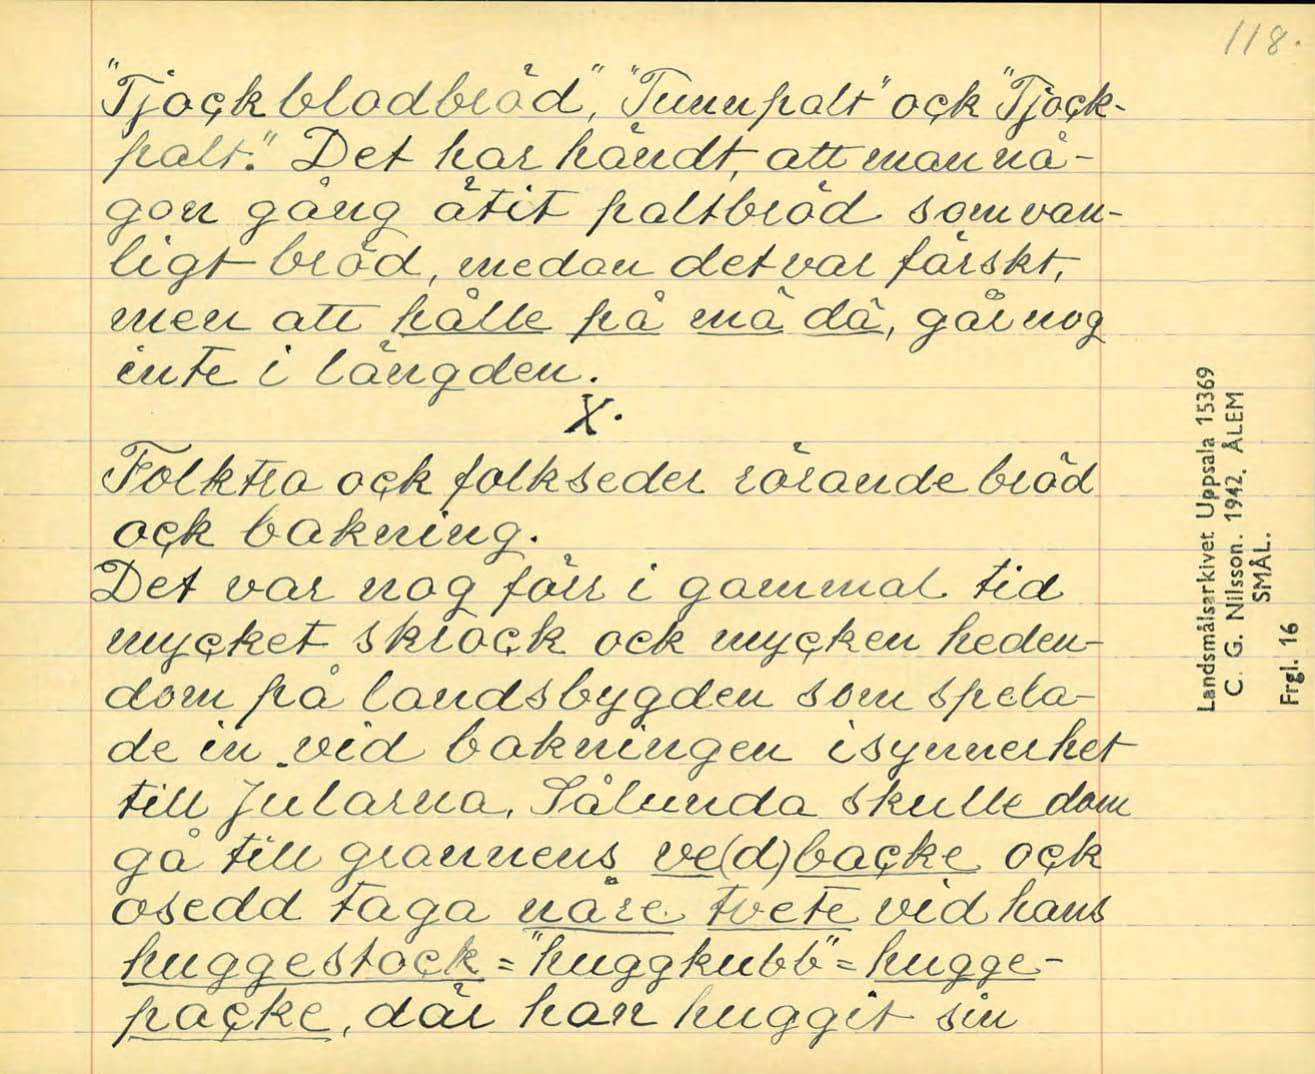 118.
"Tjockblodbröd", "Tunnpalt" ock "Tjock-
palt." Det har händt, att man nå-
gon gång ätit paltbröd som van-
ligt bröd, medan det var färskt,
men att hålle på mä dä, går nog
inte i längden.
X.
Folktro ock folkseder rörande bröd
ock bakning.
Det var nog förr i gammal tid
mycket skrock ock mycken heden-
dom på landsbygden som spela-
de in vid bakningen isynnerhet
till Jularna. Sålunda skulle dom
gå till grannens ve(d)backe ock
osedd taga nåre tvete vid hans
huggestock = "huggkubb" = hugge-
packe, där han huggit sin
Landsmålsarkivet Uppsala 15369
C. G. Nilsson. 1942. ÅLEM
SMÅL.
Frgl. 16